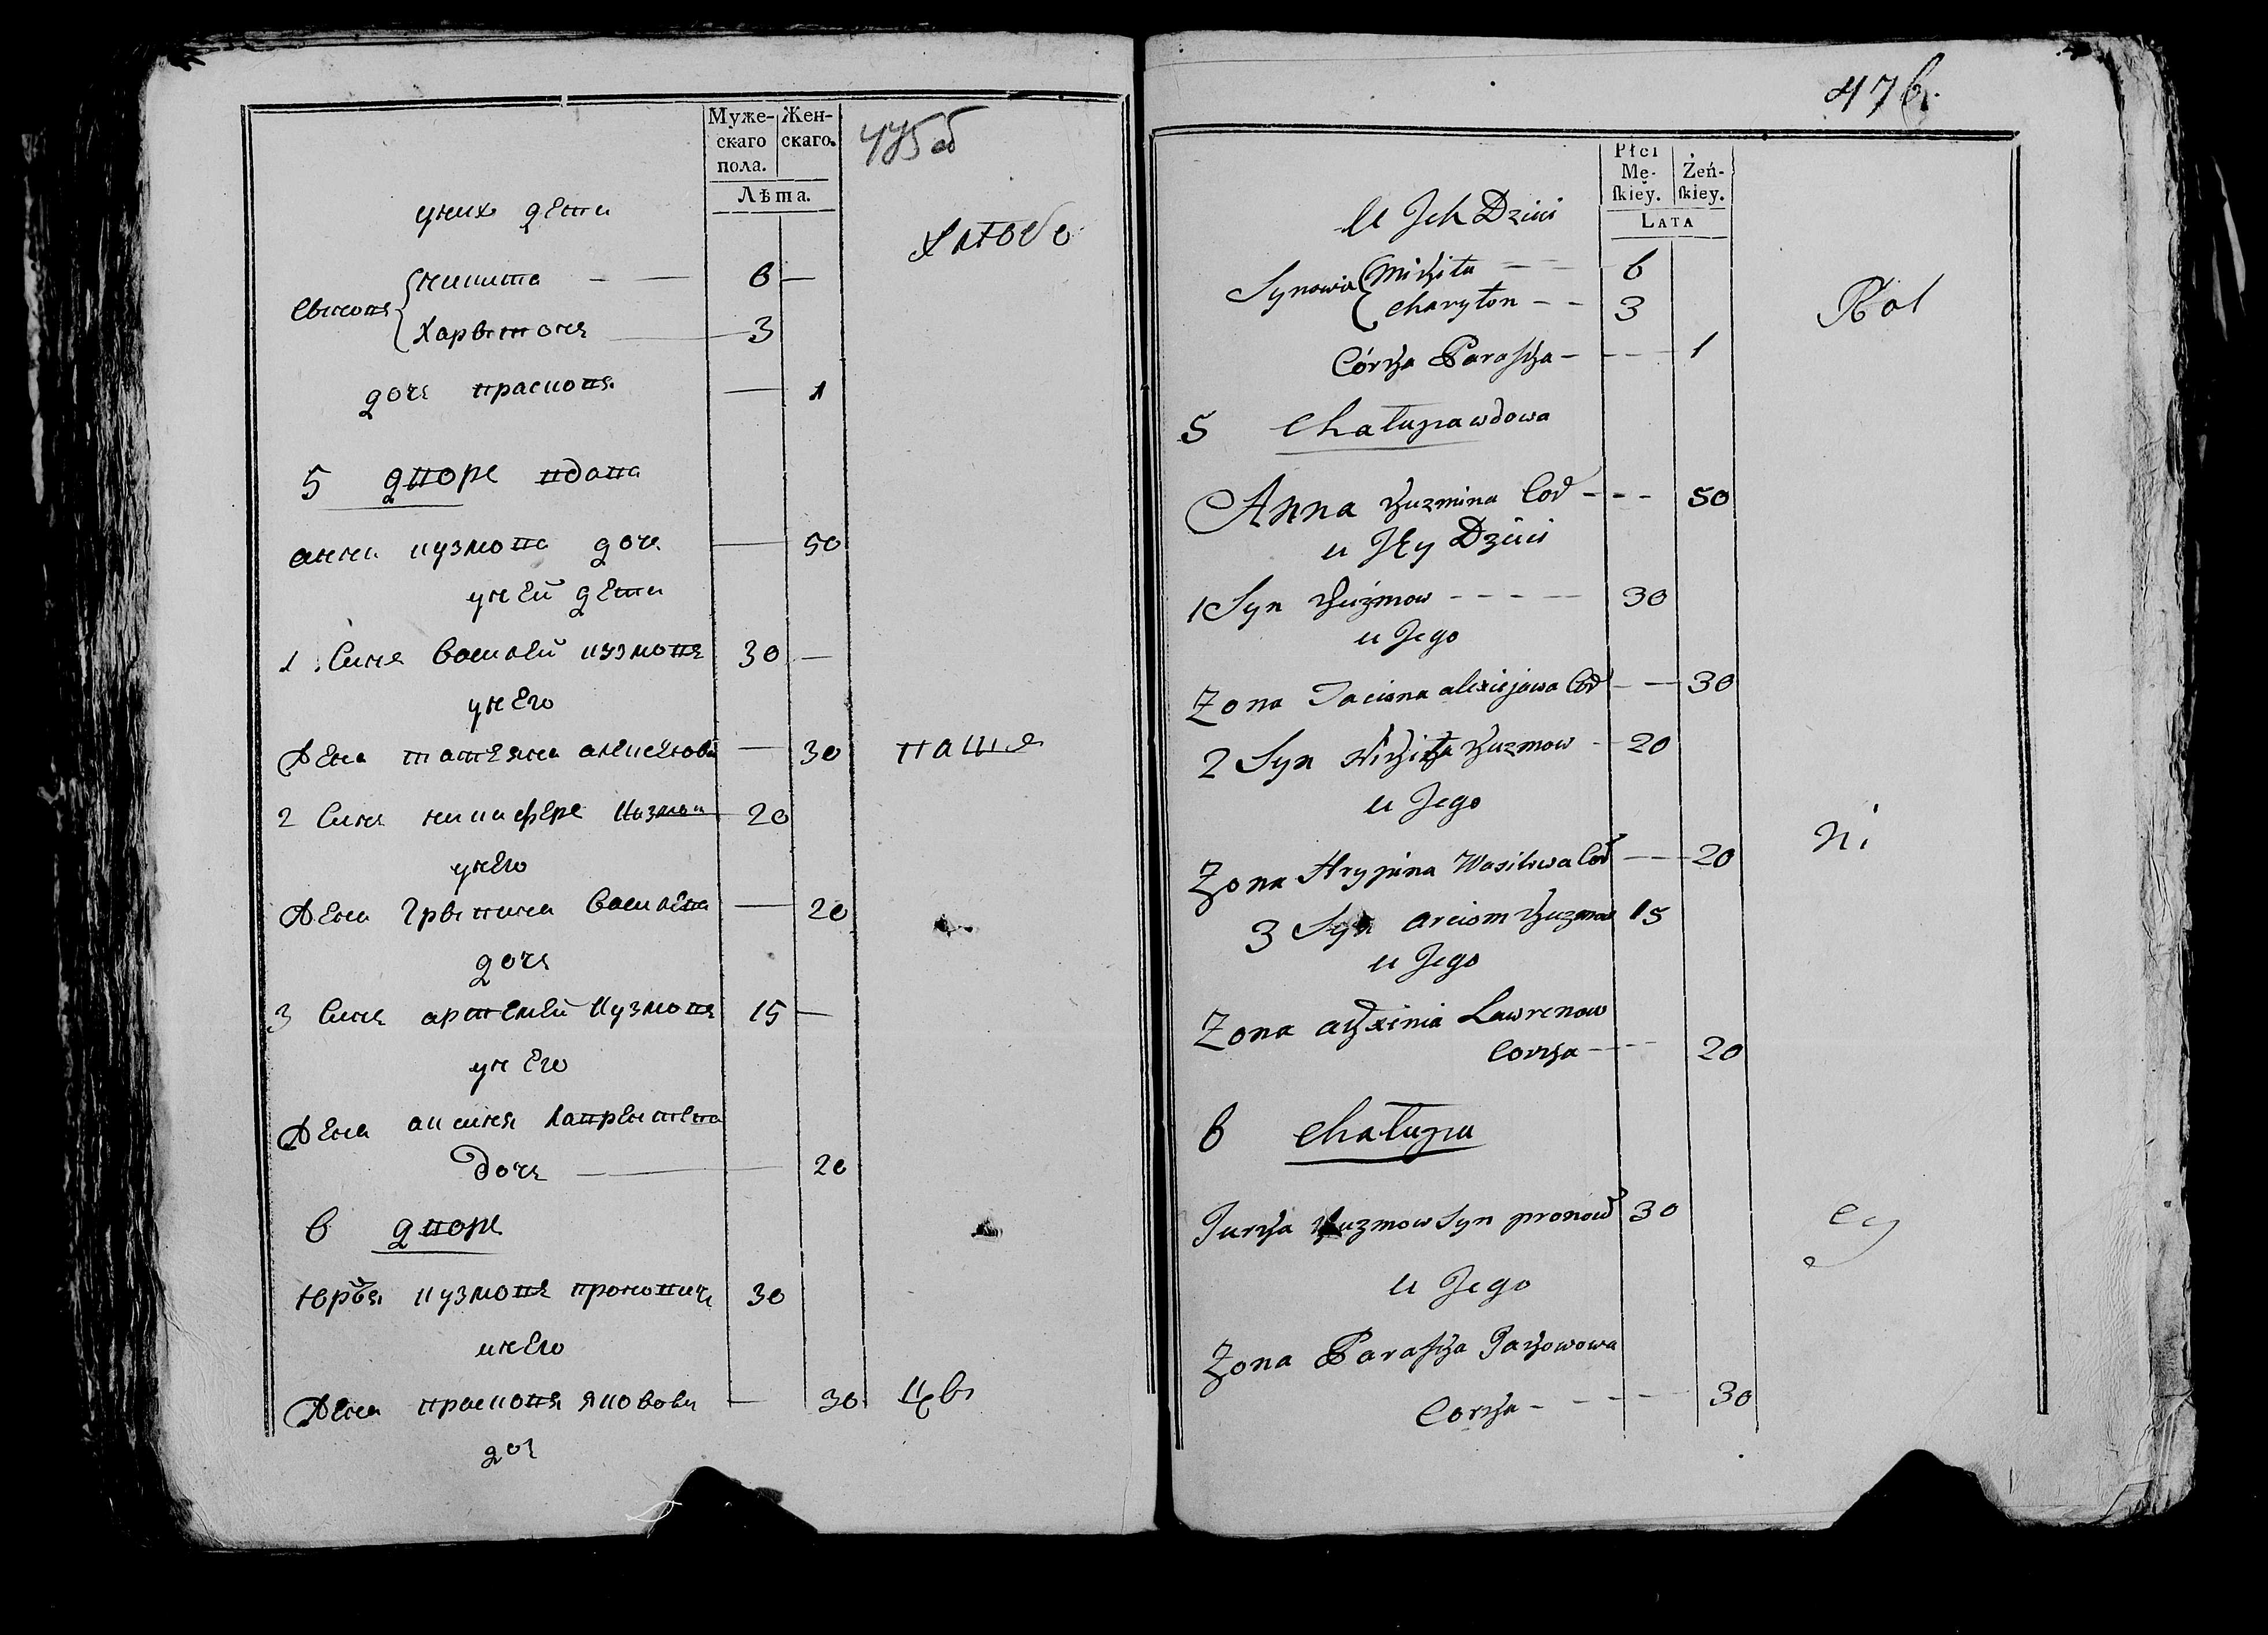 Муже-
скаго
пола.
Жен-
скаго.
Лѣта.
475 об
уних дети
хлебо
Синовя
Никита — — 6 —
Харытонъ — 3
дочъ прасковя — 1
5 дворъ вдова
анна кузмова дочъ — 50
уней дети
1 Синъ василей кузмовъ 30 —
унего
жена татеяна алексеюва — 30
наше
2 Синъ никифере кузмов 20
унего
жена грыпина василева — 20
дочъ
3 Синъ артемей кузмовъ 15 —
унего
жена аксиня лаврентева
дочъ — 20
6 дворъ
юрья кузмовъ 30
инего
жена прасковя яковова — 30
доч
476
Płci
Mę-
ſkiey.
Żeń-
ſkiey.
LATA
U Jch Dzieci
Synowie
Mikita — — 6
Charyton — — 3
Córka Paraſka — — — 1
5 Chałupa wdowa
Anna Kuzmina Cor - - - 50
u Jey Dzieci
1 Syn Kuzmow - - - - 30
u Jego
Zona Taciana alexiejowa Cor — — 30
2 Syn Kuzmow - 20
u Jego
Zona Hrypina Wasilewa Cor — — 20
ni
3 Syn arciom Kuzmow 15
u Jego
Zona akxinia Lawrenow
Corka - - - 20
6 Chałupa
Jurka Kuzmow Syn 30
u Jego
Zona Paraſka Jakowowa
Corka - - - - 30